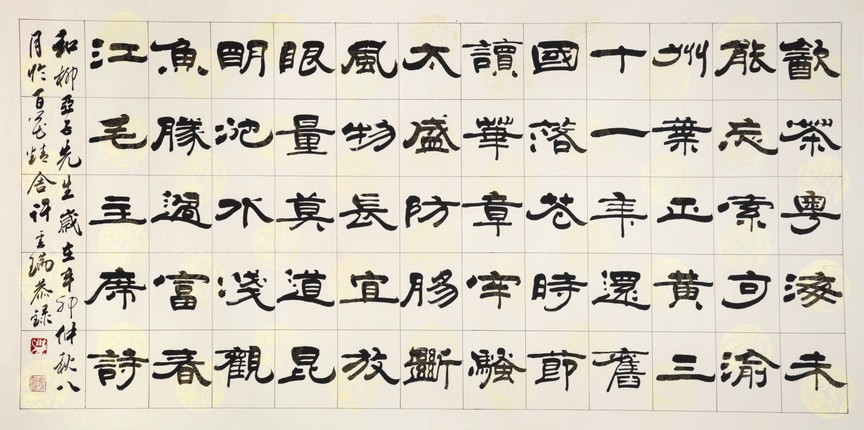 㱃茶粤海未
能忘索句渝
州葉正黃三
十一年還舊
國落花時節
讀華章牢騷
太盛防腸斷
風物長宜放
眼量莫道昆
明池水淺觀
魚勝過富春
江毛主席詩
和柳亞子先生歲在辛卯仲秋八
月於百花精舍許主瑞恭錄